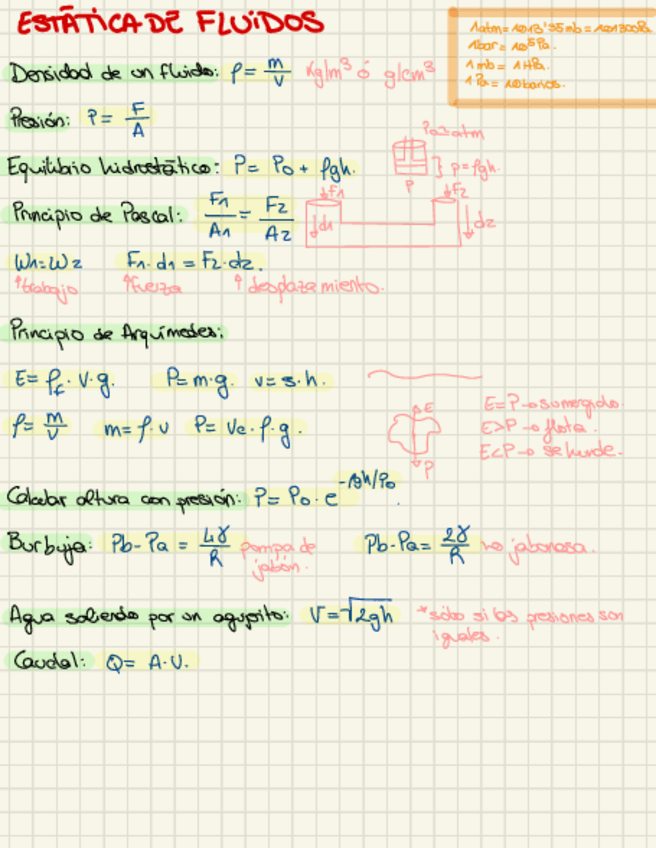 ESTÁTICA DE FLUIDOS
1atm = 1013'35mb = 101300Pa.
1bar = 10⁵Pa.
1mb = 1HPa.
1Pa = 10barias.
Densidad de un fluido: ρ = m/V Kg/m³ ó g/cm³
Presión: P = F/A
P0=atm
Equilibrio hidrostático: P = P0 + ρgh.
} p=ρgh.
P
Principio de Pascal: F1/A1 = F2/A2
F1 F2
d1 d2
W1=W2 F1·d1 = F2·d2.
↑trabajo ↑fuerza ↑desplazamiento.
Principio de Arquímedes:
E= ρf·V·g. P=m·g. v=s·h.
ρ = m/V m=ρ·v P= Ve·ρ·g.
E
P
E=P→sumergido.
E>P→flota.
E<P→se hunde.
Calcular altura con presión: P= P0·e
Burbuja: Pb-Pa = 4γ/R pompa de jabón. Pb-Pa= 2γ/R no jabonosa.
Agua saliendo por un agujerito: V=√2gh *sólo si las presiones son iguales.
Caudal: Q= A·V.